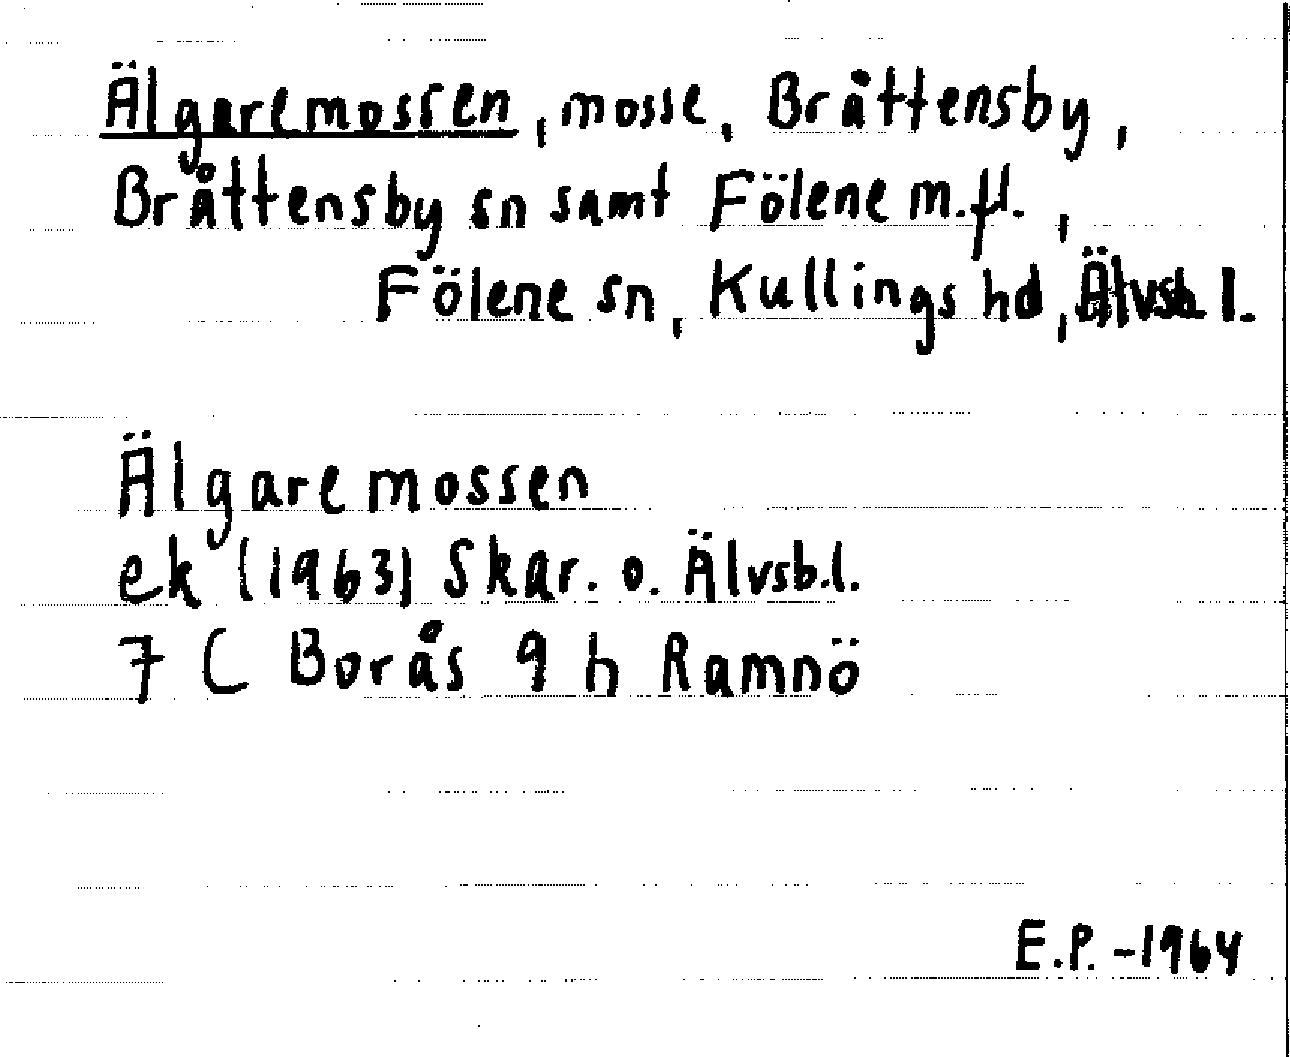 Älgaremossen, mosse, Bråttensby,
Bråttensby sn samt Fölene m.fl.,
Fölene sn, Kullings hd, Älvsb l.
Älgaremossen
ek (1963) Skar. o. Älvsb.l.
7 C Borås 9 h Ramnö
E.P. -1964